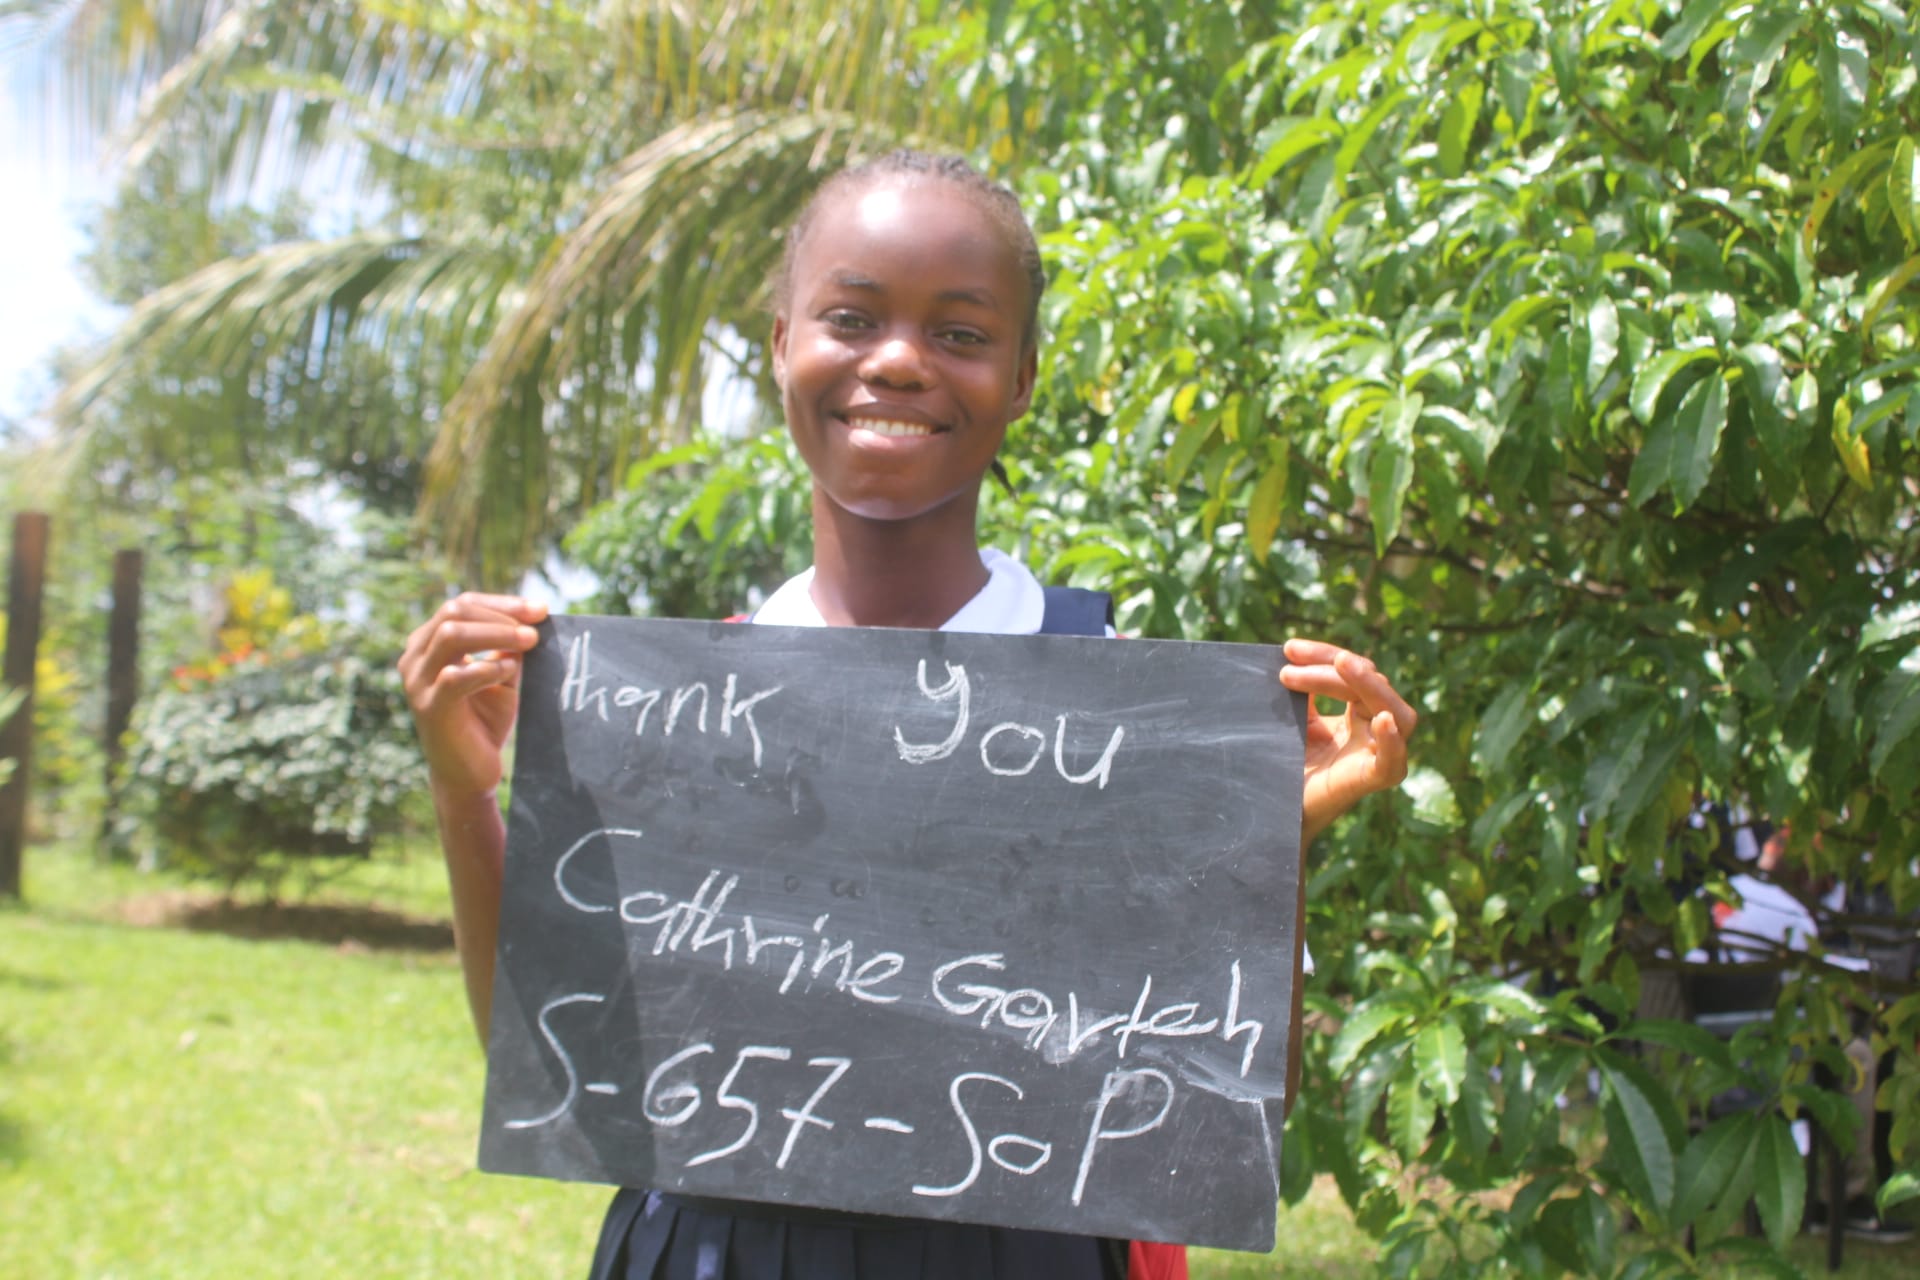 thank you
Cathrine Garteh
S-657-SoP